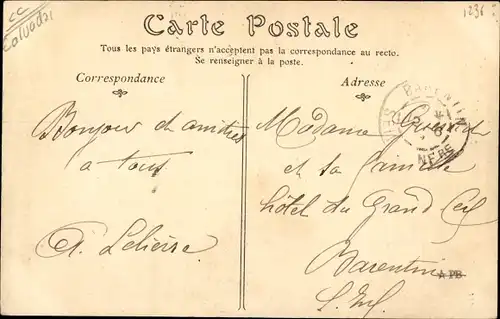 CC
Calvados
1236
Carte Postale
Tous les pays étrangers n'acceptent pas la correspondance au recto.
Se renseigner à la poste.
Correspondance
Adresse
Bonjour et amitiés
a tous
A. Lelièvre
Madame
et sa famille
hôtel du Grand Cerf
Barentin
S. Inf
BARENTIN